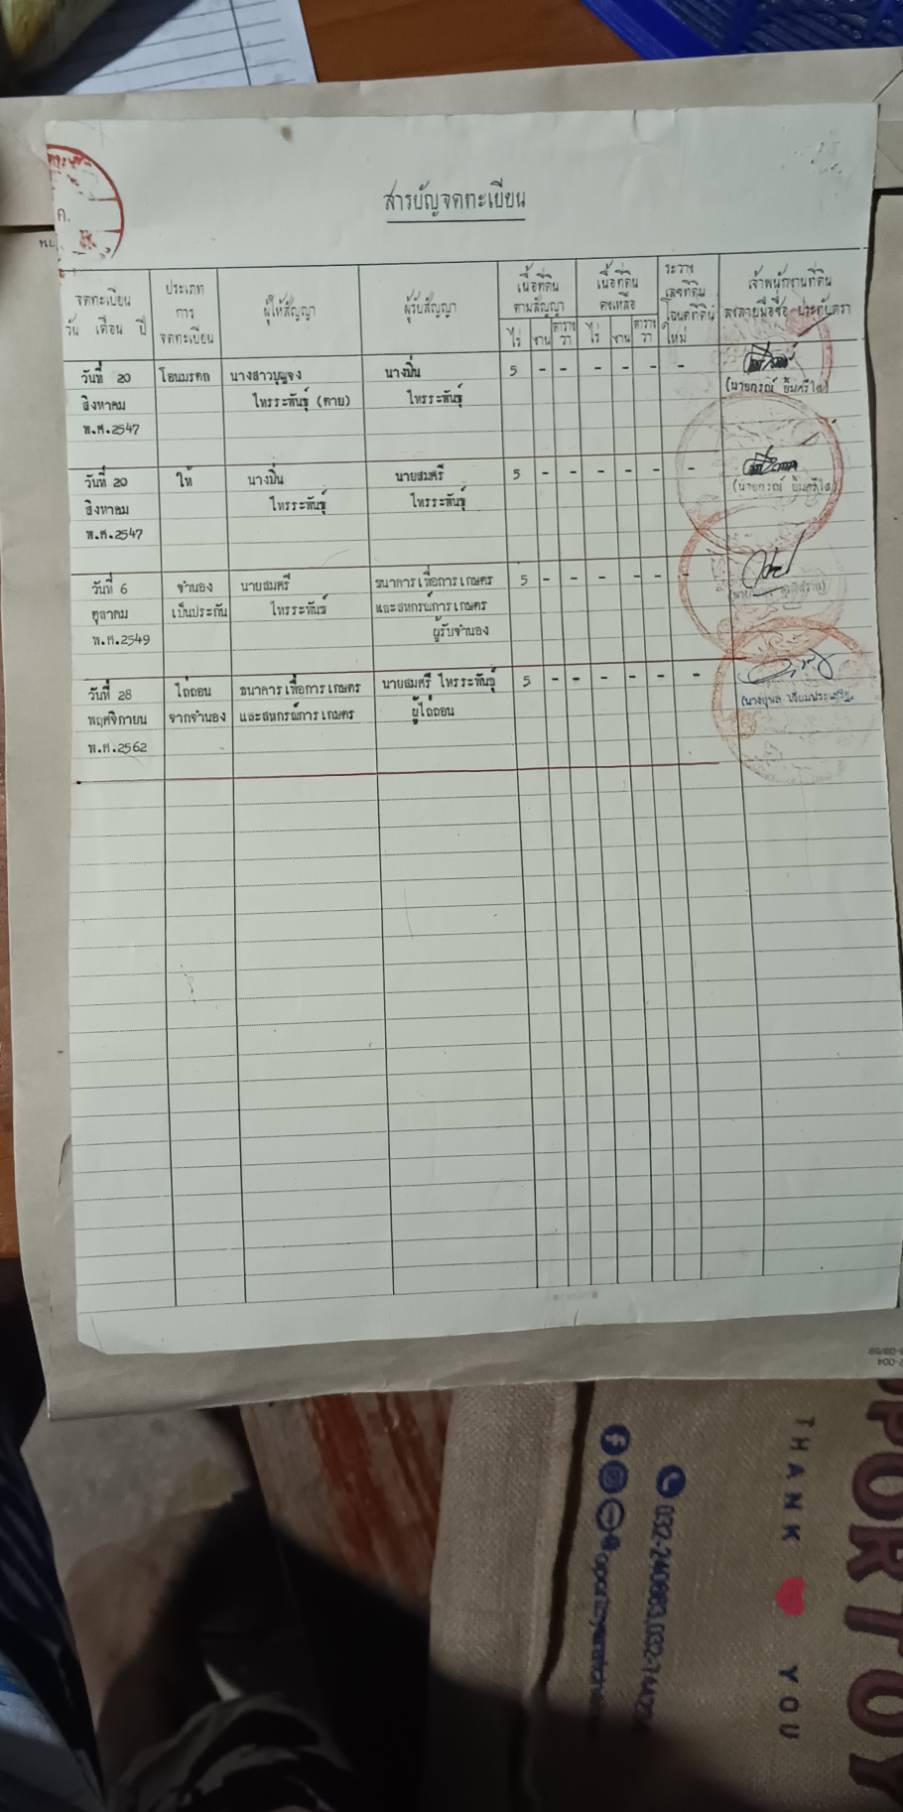 สารบัญจดทะเบียน
จดทะเบียน
วัน เดือน ปี
ประเภท
การ
จดทะเบียน
ผู้ให้สัญญา
ผู้รับสัญญา
เนื้อที่ดิน
ตามสัญญา
ไร่ งาน ตารางวา
เนื้อที่ดิน
คงเหลือ
ไร่ งาน ตารางวา
ระวาง
เลขที่ดิน
โฉนดที่ดิน
ใหม่
เจ้าพนักงานที่ดิน
ลงลายมือชื่อ ประทับตรา
วันที่ 20 โอนมรดก นางสาวบุญจง นางปิ่น 5 - - - - - -
สิงหาคม ไทรระพันธุ์ (ตาย) ไทรระพันธุ์ (นายกรณ์ ยิ้มศรีใส)
พ.ศ.2547
วันที่ 20 ให้ นางปิ่น นายสมศรี 5 - - - - - -
สิงหาคม ไทรระพันธุ์ ไทรระพันธุ์ (นายกรณ์ ยิ้มศรีใส)
พ.ศ.2547
วันที่ 6 จำนอง นายสมศรี ธนาคารเพื่อการเกษตร 5 - - - - - -
ตุลาคม เป็นประกัน ไทรระพันธุ์ และสหกรณ์การเกษตร
พ.ศ.2549 ผู้รับจำนอง
วันที่ 28 ไถ่ถอน ธนาคารเพื่อการเกษตร นายสมศรี ไทรระพันธุ์ 5 - - - - - -
พฤศจิกายน จากจำนอง และสหกรณ์การเกษตร ผู้ไถ่ถอน
พ.ศ.2562
THANK YOU